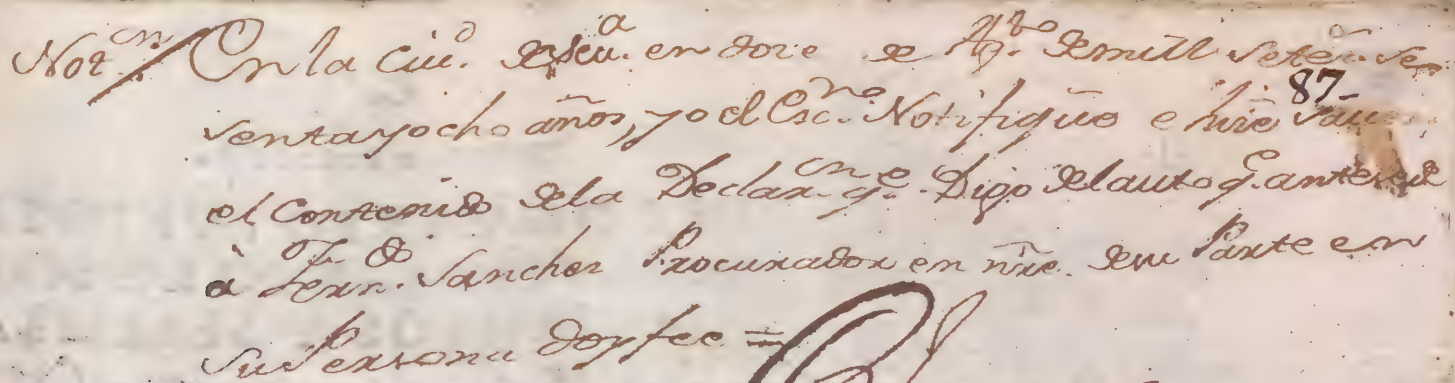 Not.ⁿ En la ciu.ᵈ de seu.ᵃ en doze de 9.ᵇʳᵉ de mill setez.ˢ se
87_
sentayocho años, yo el Esc.ⁿᵒ Notifiqûe e hize sauer
el contenido dela Declar.ᶜⁿ q.ᵉ Digo del auto q.ᵉ antezede
à Fern.ᵈᵒ Sanchez Procurador en nr̃e. desu Parte en
su Persona doy fee =